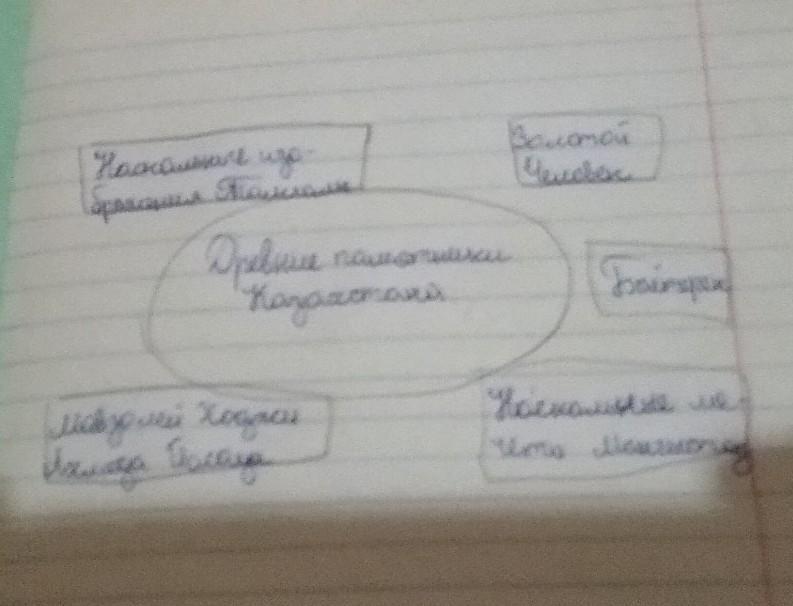 Наскальные изо-
бражения Тамгалы
Золотой
Человек
Древние памятники
Казахстана
Байтерек
Мавзолей Ходжи
Ахмеда Ясави
Наскальные ме-
чети Мангистау